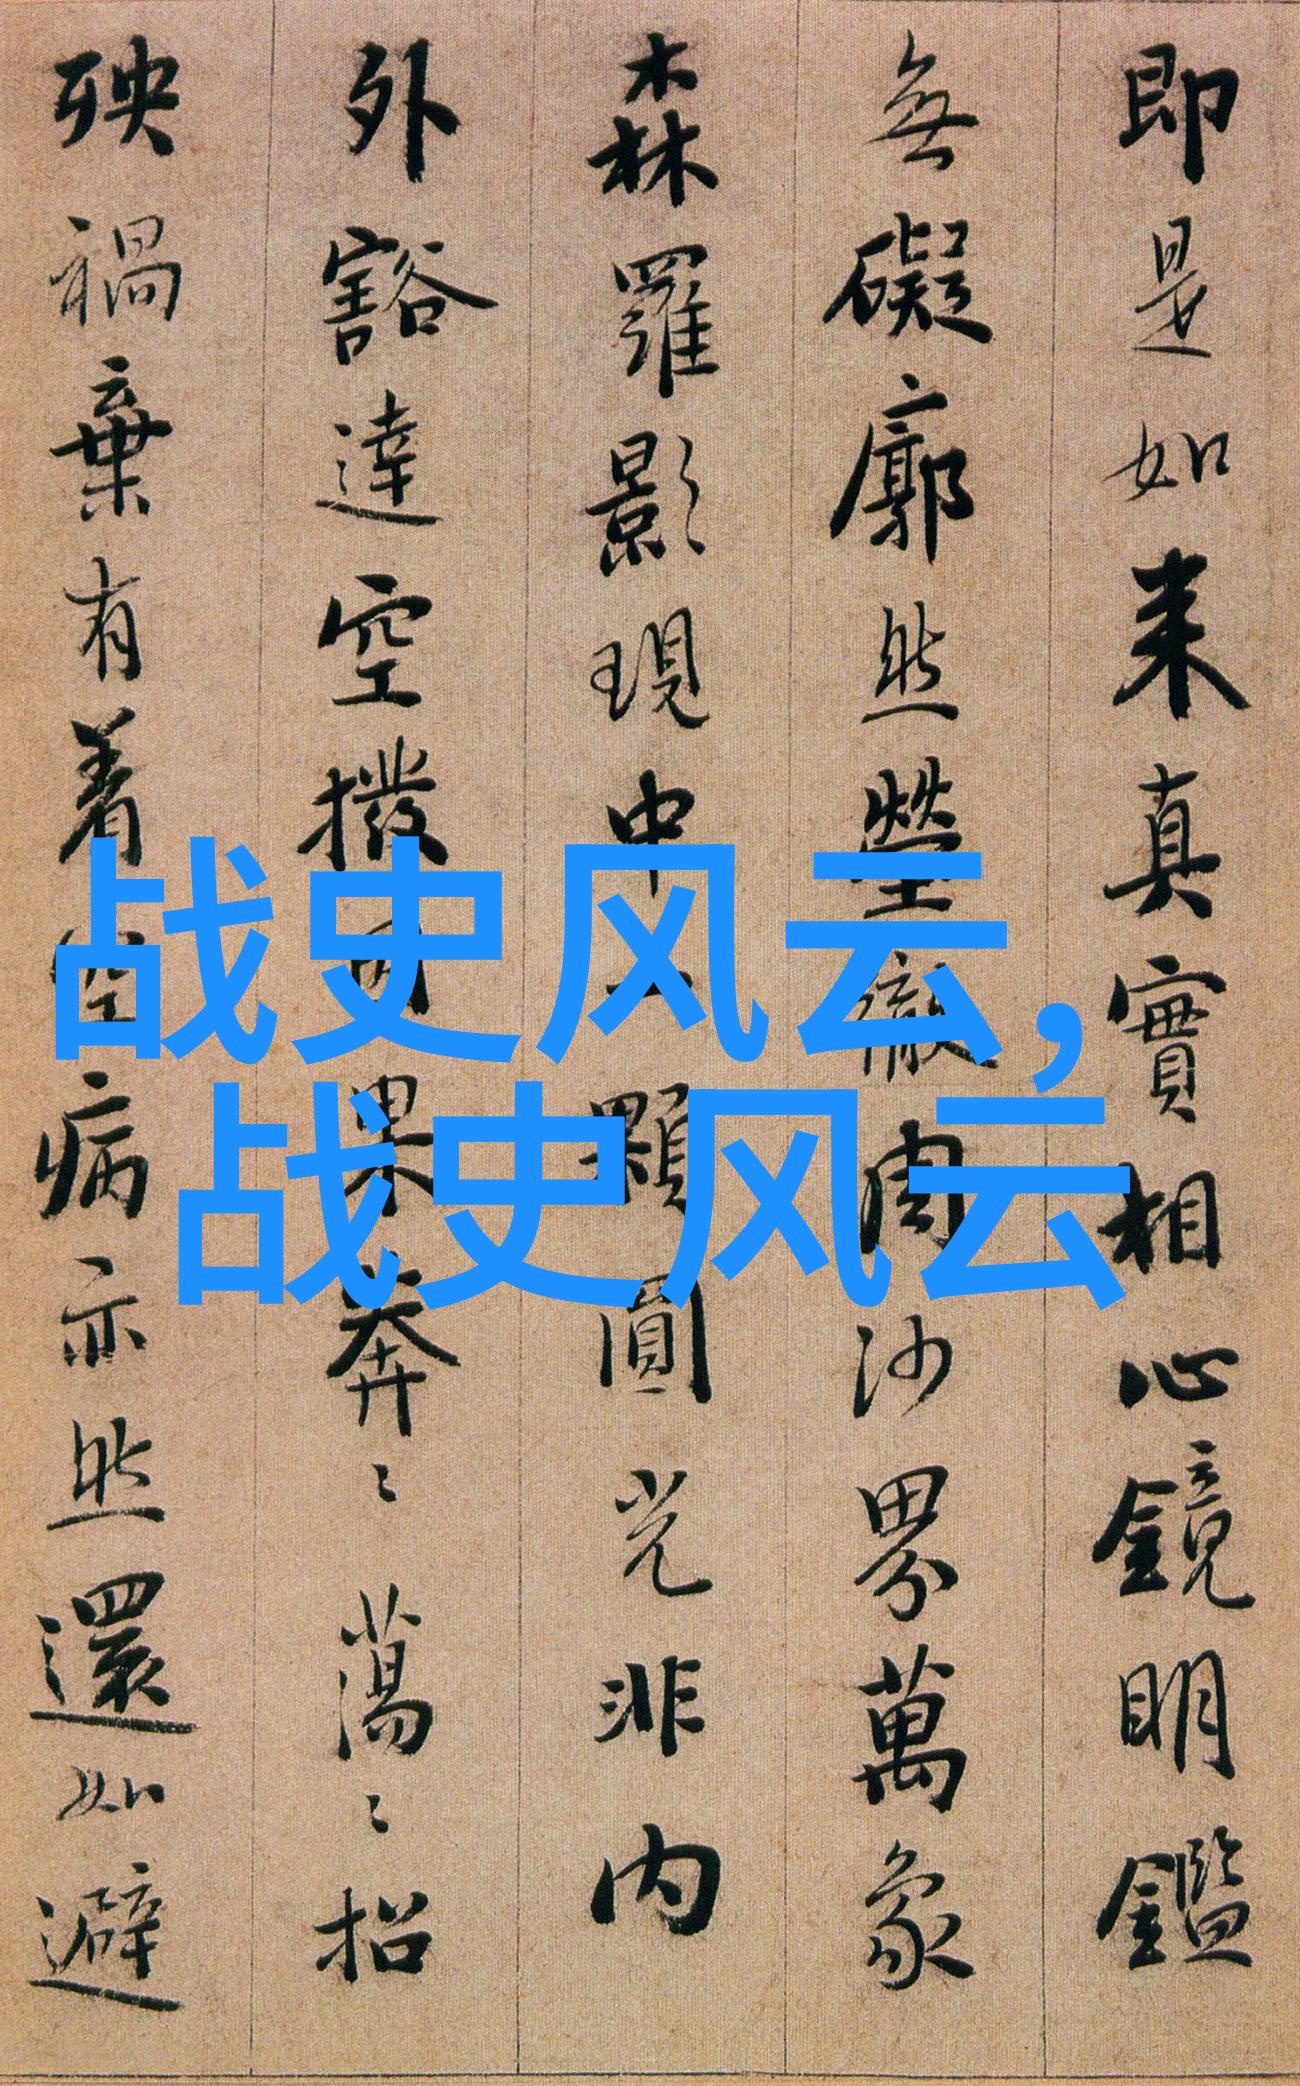 即是如来真實相心鏡明鑑
無礙廓然瑩徹周沙界萬象
森羅影現中一顆圓光非内
外豁達空撥因果莽〻蕩〻招
殃禍棄有着空病亦然還如避
战史风云,
战史风云